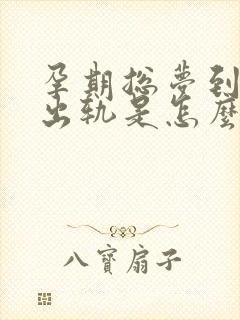 孕期總夢到
出轨是怎麼
八寶扇子